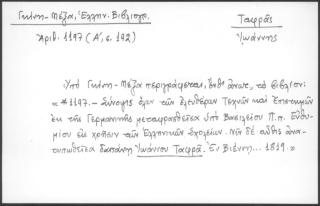 Γκίνη-Μέξα, Ἑλλην. Βιβλιογρ.
Ταφρᾶς
Ἀριθ. 1197 (Α', σ. 192)
Ἰωάννης
Ὑπὸ Γκίνη-Μέξα περιγράφεται, ἔνθ' ἄνωτ., τὸ βιβλίον:
«*1197.- Σύνοψις ὅλων τῶν ἐλευθέρων Τεχνῶν καὶ Ἐπιστημῶν
ἐκ τῆς Γερμανικῆς μεταφρασθεῖσα ὑπὸ Βασιλείου Π.π. Εὐθυ-
μίου εἰς χρῆσιν τῶν Ἑλληνικῶν σχολείων. Νῦν δὲ αὖθις ἀνα-
τυπωθεῖσα δαπάνῃ Ἰωάννου Ταφρᾶ. Ἐν Βιέννῃ... 1819.»